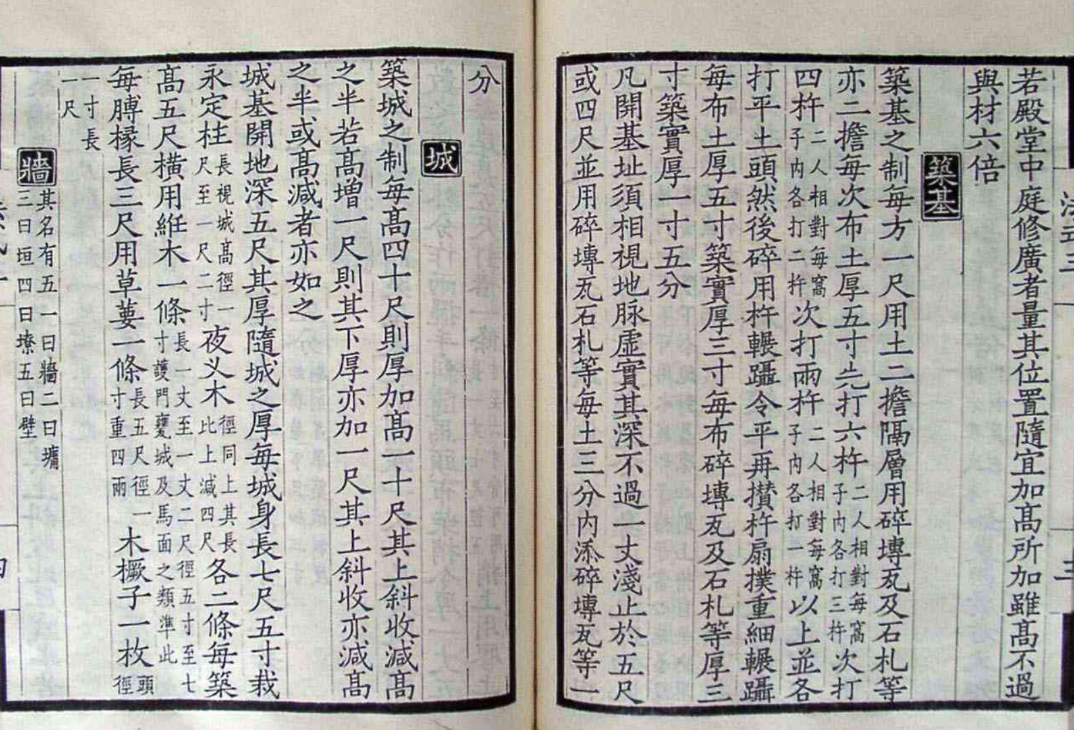 若殿堂中庭修廣者量其位置隨宜加高所加雖高不過
與材六倍
築基
築基之制每方一尺用土二擔隔層用碎塼瓦及石札等
亦二擔每次布土厚五寸先打六杵二人相對每窩子內各打三杵次打
四杵二人相對每窩子內各打二杵次打兩杵二人相對每窩子內各打一杵以上並各
打平土頭然後碎用杵輾躡令平再攢杵扇撲重細輾躡
每布土厚五寸築實厚三寸每布碎塼瓦及石札等厚三
寸築實厚一寸五分
凡開基址須相視地脉虛實其深不過一丈淺止於五尺
或四尺並用碎塼瓦石札等每土三分內添碎塼瓦等一
分
城
築城之制每高四十尺則厚加高一十尺其上斜收減高
之半若高增一尺則其下厚亦加一尺其上斜收亦減高
之半或高減者亦如之
城基開地深五尺其厚隨城之厚每城身長七尺五寸栽
永定柱長視城高徑一尺至一尺二寸夜义木徑同上其長比上減四尺各二條每築
高五尺橫用絍木一條長一丈至一丈二尺徑五寸至七寸護門甕城及馬面之類準此
每膊椽長三尺用草葽一條長五尺徑一寸重四兩木橛子一枚頭徑
一寸長一尺
牆其名有五一曰牆二曰墉三曰垣四曰𡑞五曰壁